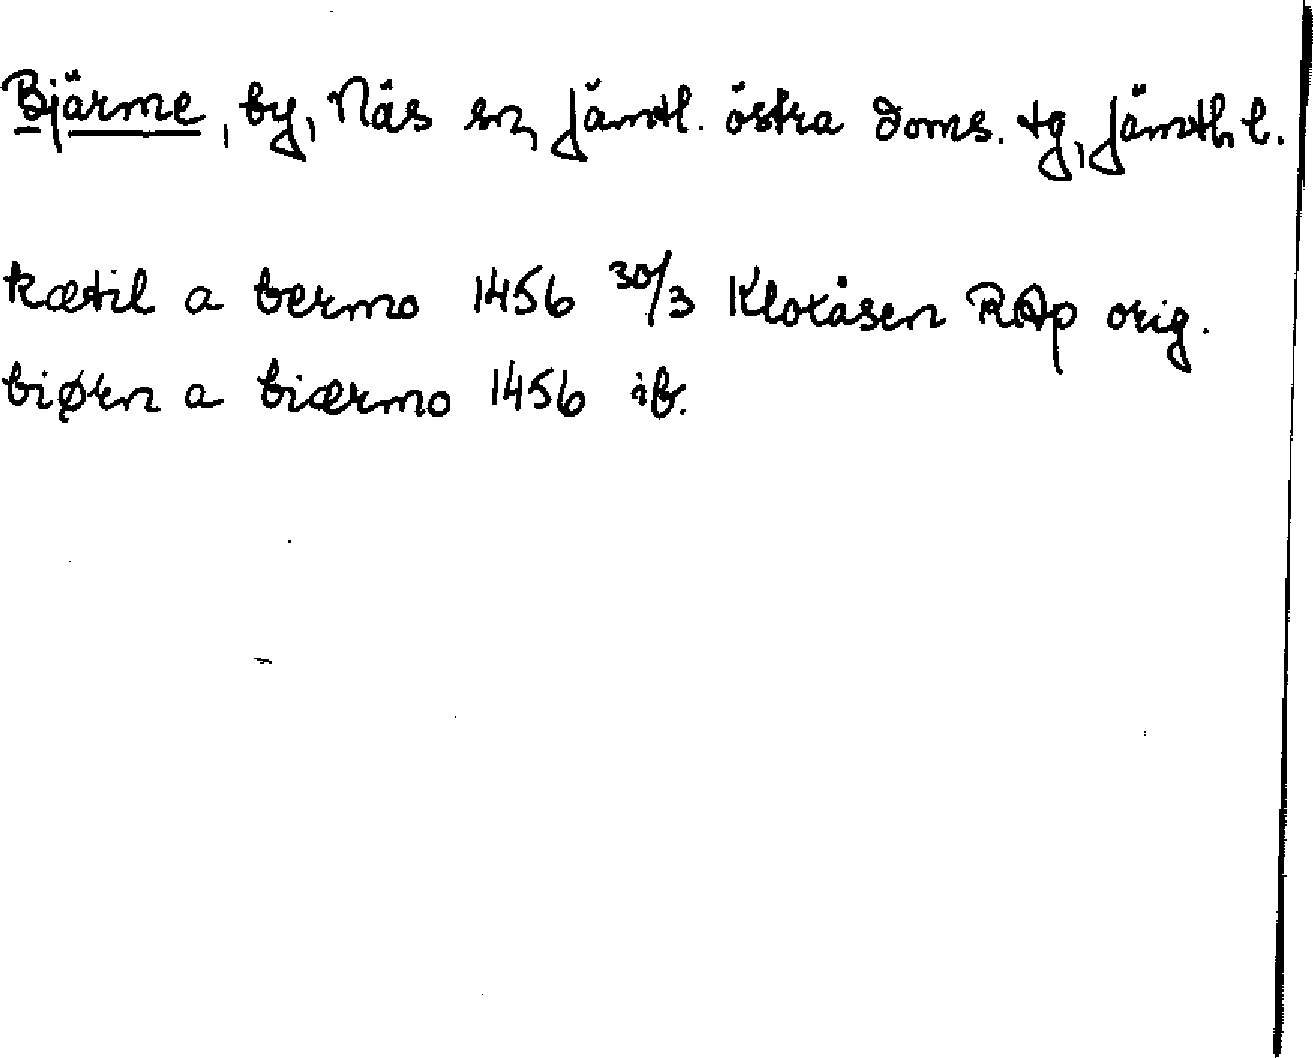 Bjärme, by, Näs sn, Jämtl. östra doms. tg, Jämtl. l.
kætil a bermo 1456 30/3 Kloxåsen RAp orig.
biørn a biærmo 1456 ib.